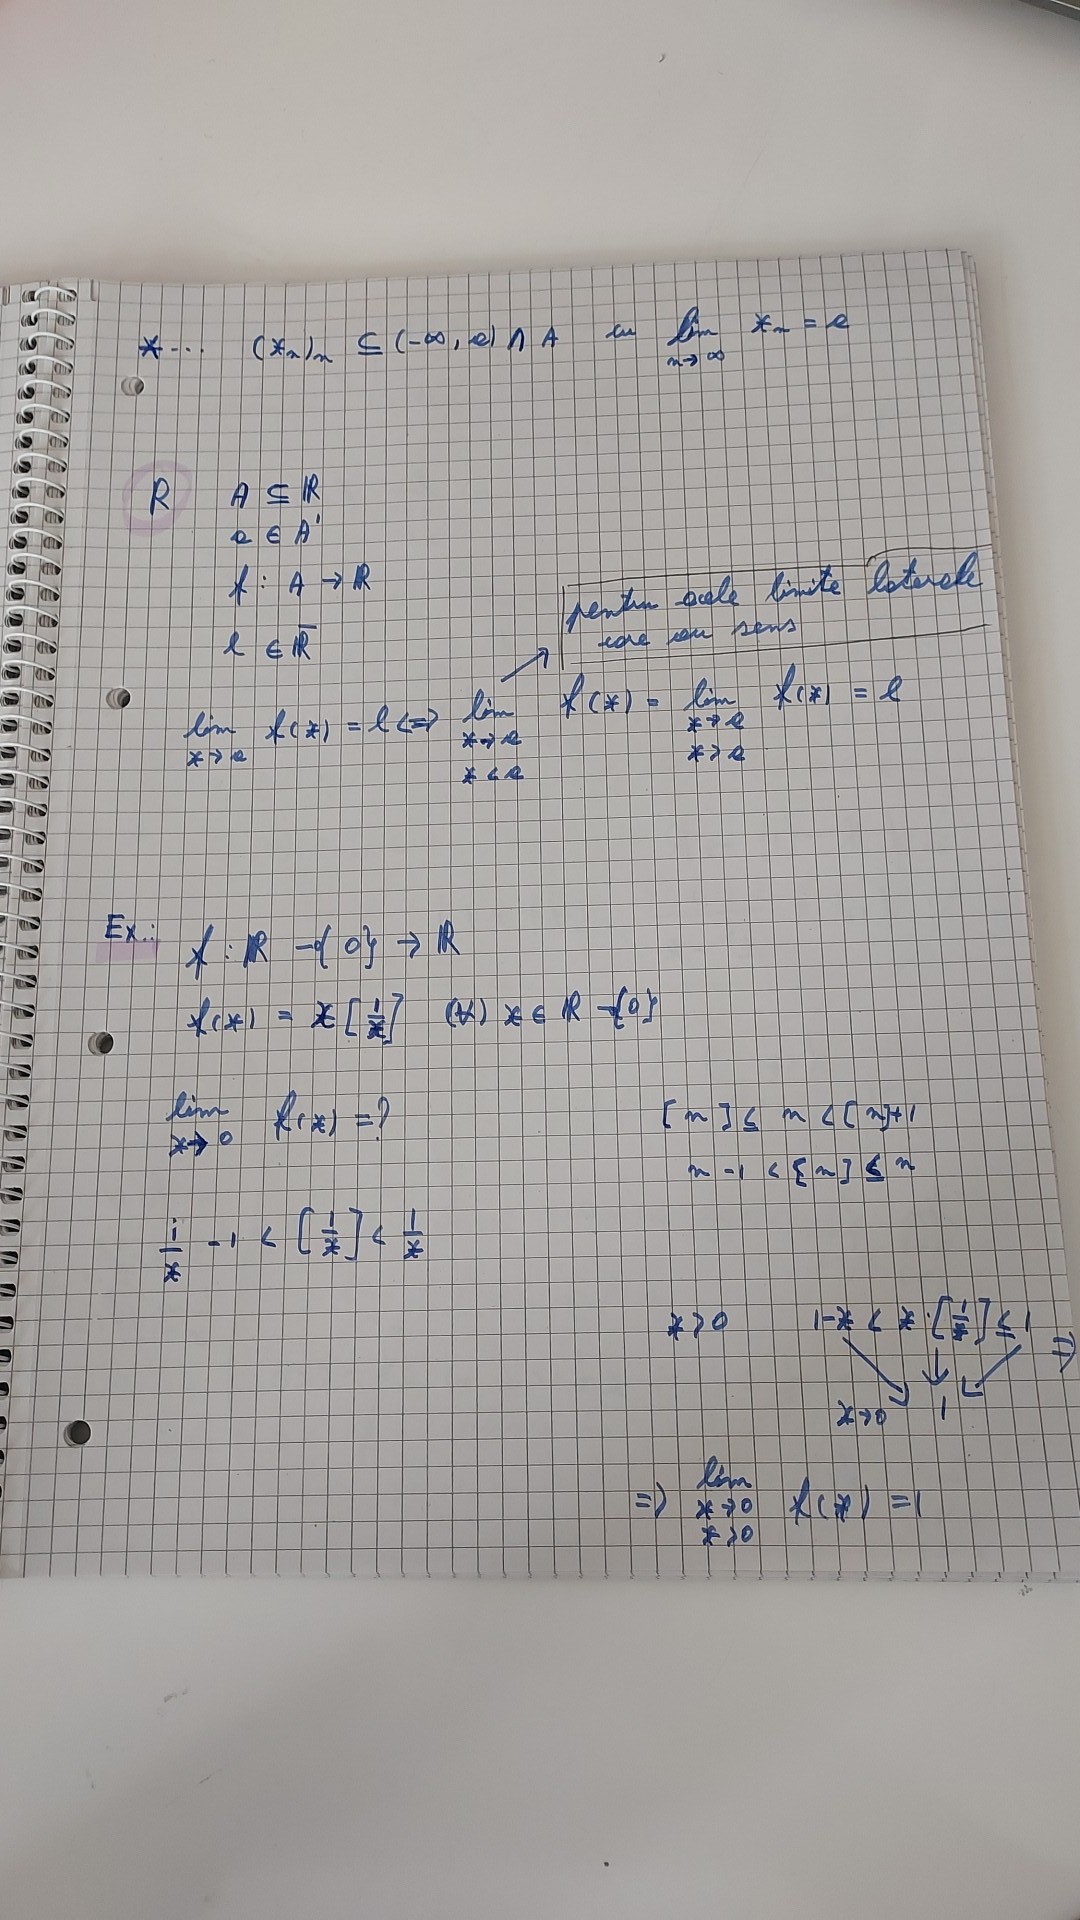 * ... (xₙ)ₙ ⊆ (-∞, a) ∩ A cu lim xₙ = a
n→∞
R A ⊆ ℝ
a ∈ A'
f : A → ℝ
l ∈ ℝ̅
pentru acele limite laterale
care au sens
lim f(x) = l <=> lim f(x) = lim f(x) = l
x→a x→a x→a
x<a x>a
Ex.: f : ℝ -{0} → ℝ
f(x) = x[1/x] (∀) x ∈ ℝ -{0}
lim f(x) = ?
x→0
[n] ≤ n < [n]+1
n-1 < [n] ≤ n
1/x - 1 < [1/x] < 1/x
x>0 1-x < x·[1/x] ≤ 1 =>
x→0 1
=> lim f(x) = 1
x→0
x>0